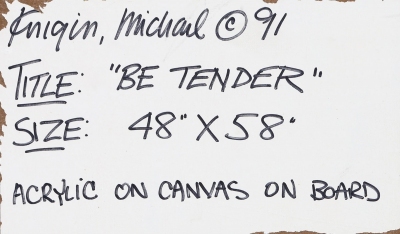 Knigin, Michael © 91
TITLE: "BE TENDER"
SIZE: 48" X 58"
ACRYLIC ON CANVAS ON BOARD